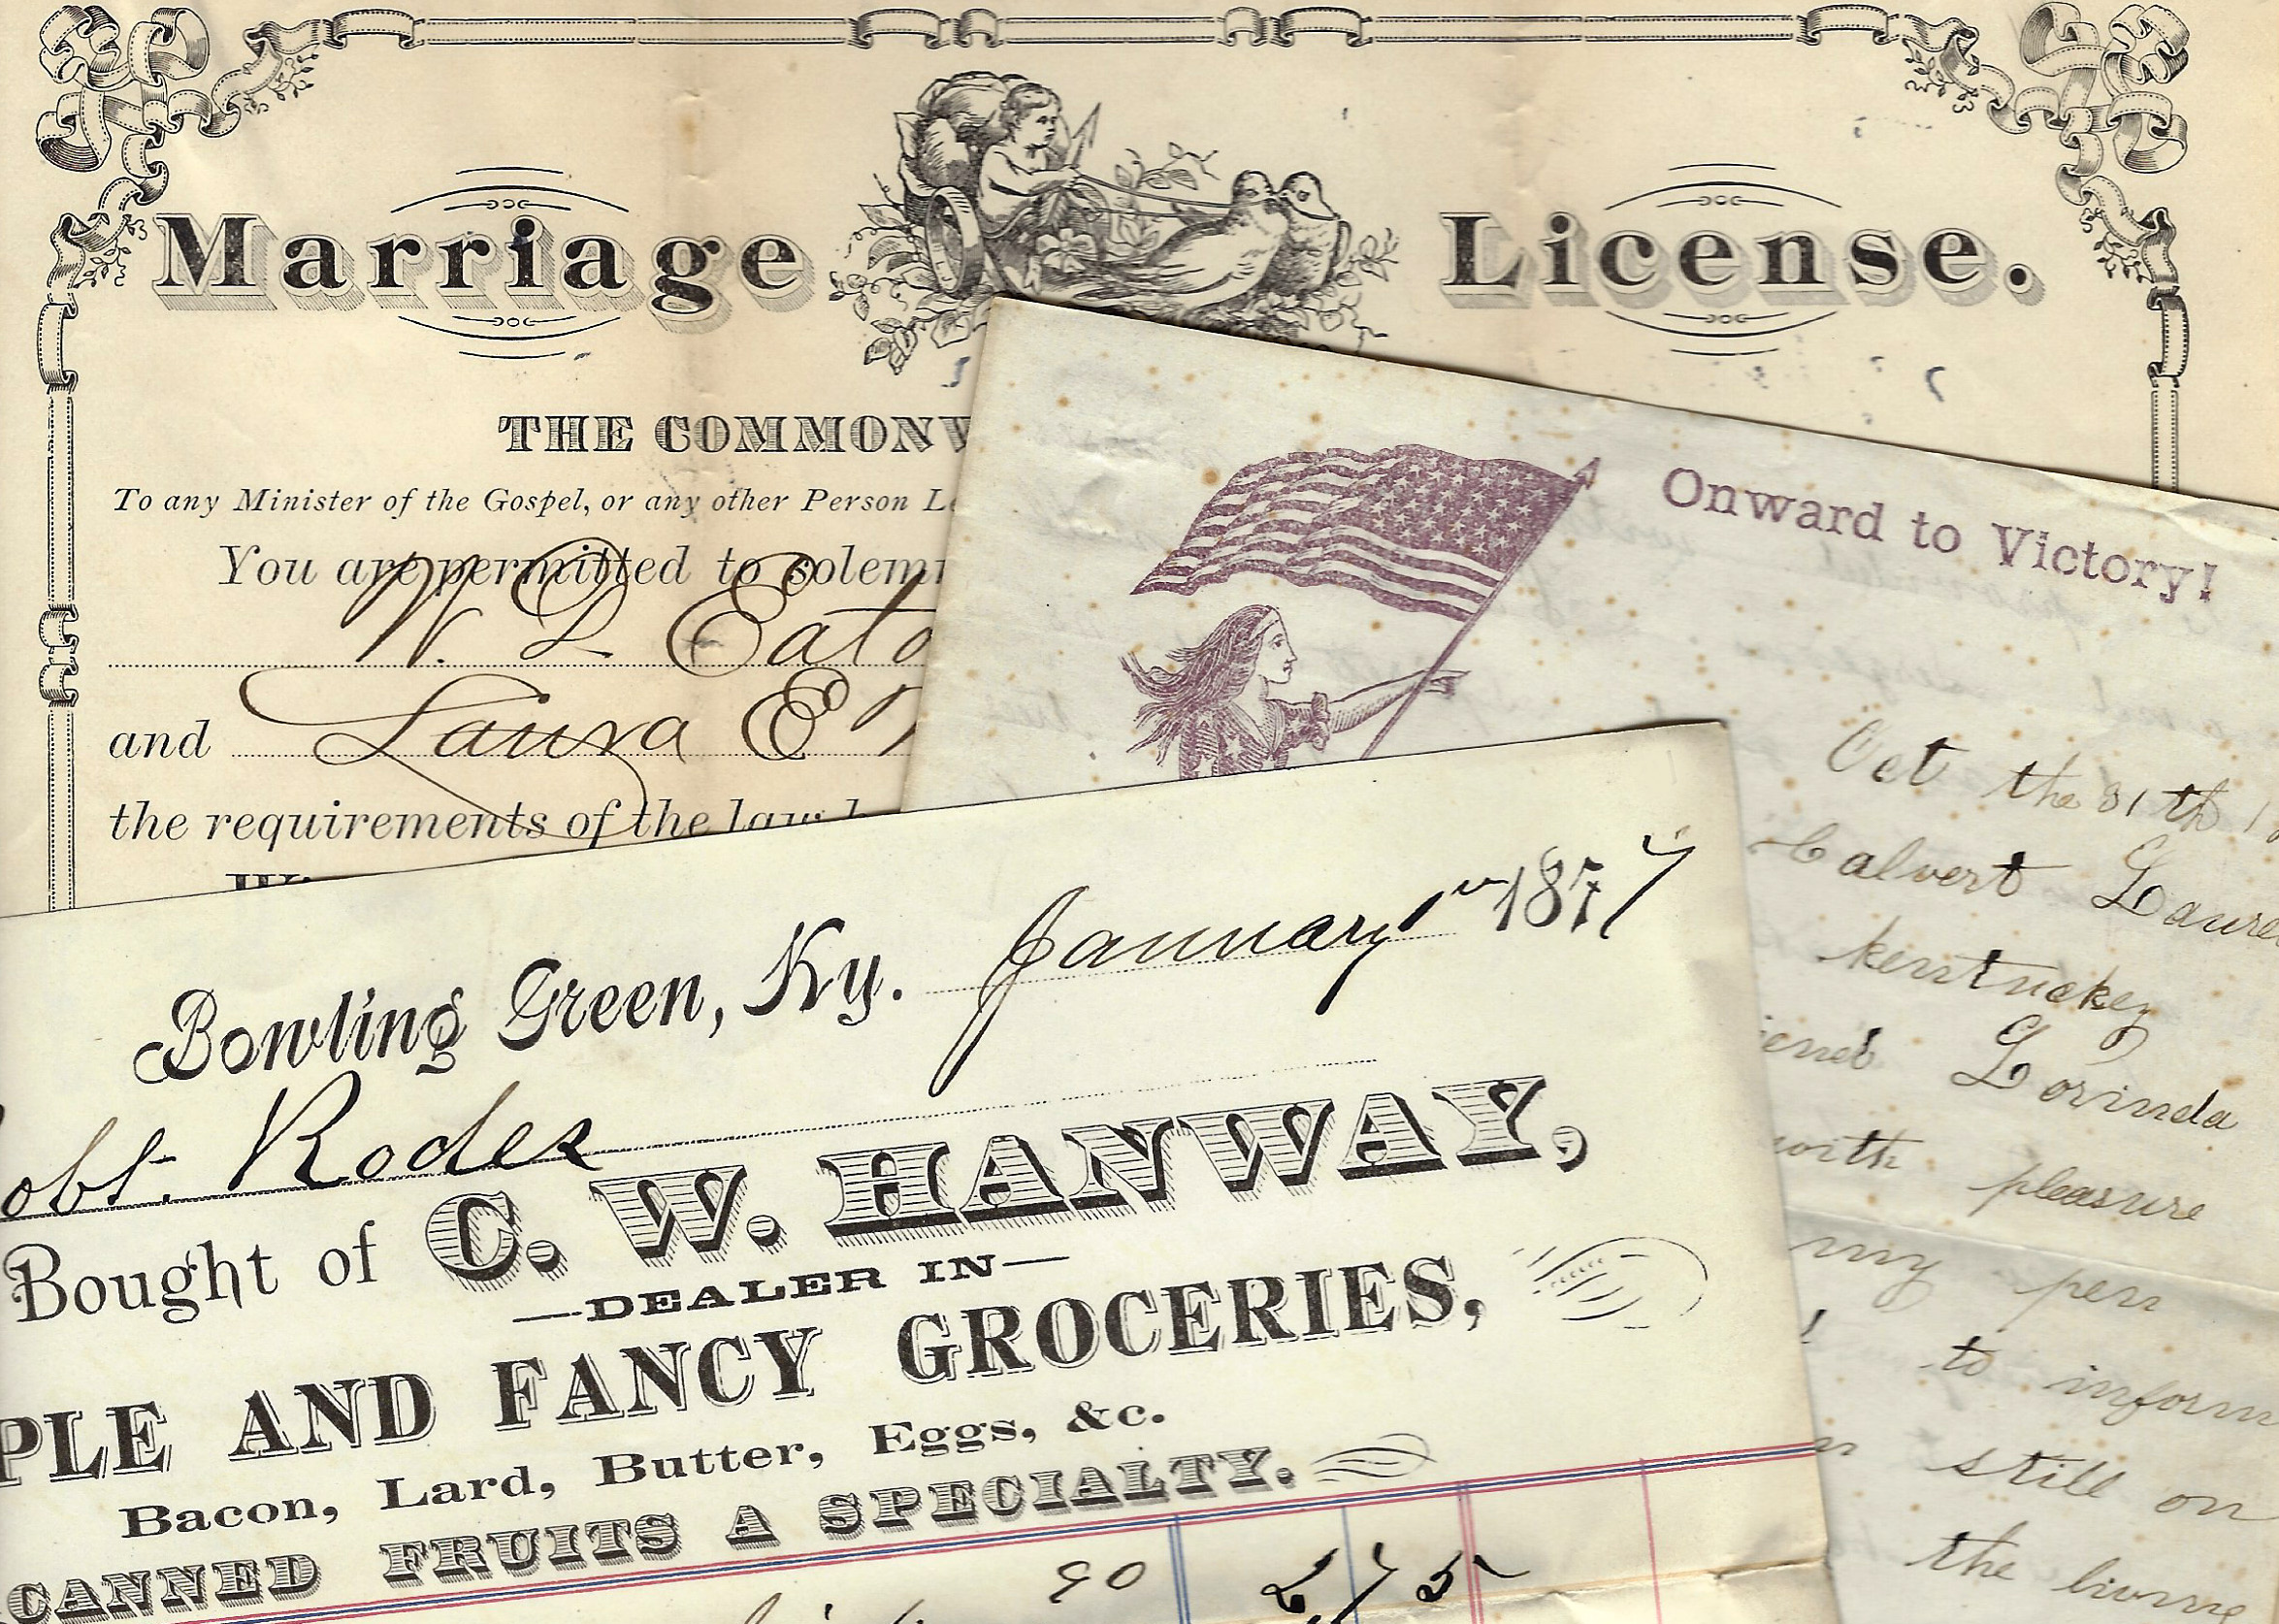 Marriage License.
THE COMMONW
To any Minister of the Gospel, or any other Person Le
You are permitted to solemn
W. L. Eato
and Laura E
the requirements of the law h
Onward to Victory!
Oct the 31th 1
Calvert Laure
kentuckey
iend Lorinda
with pleasure
my pen
to inform
still on
the living
Bowling Green, Ky. January 1st 1877
obt. Rodes
Bought of C. W. HANWAY,
—DEALER IN—
PLE AND FANCY GROCERIES,
Bacon, Lard, Butter, Eggs, &c.
CANNED FRUITS A SPECIALTY.
90 2,75